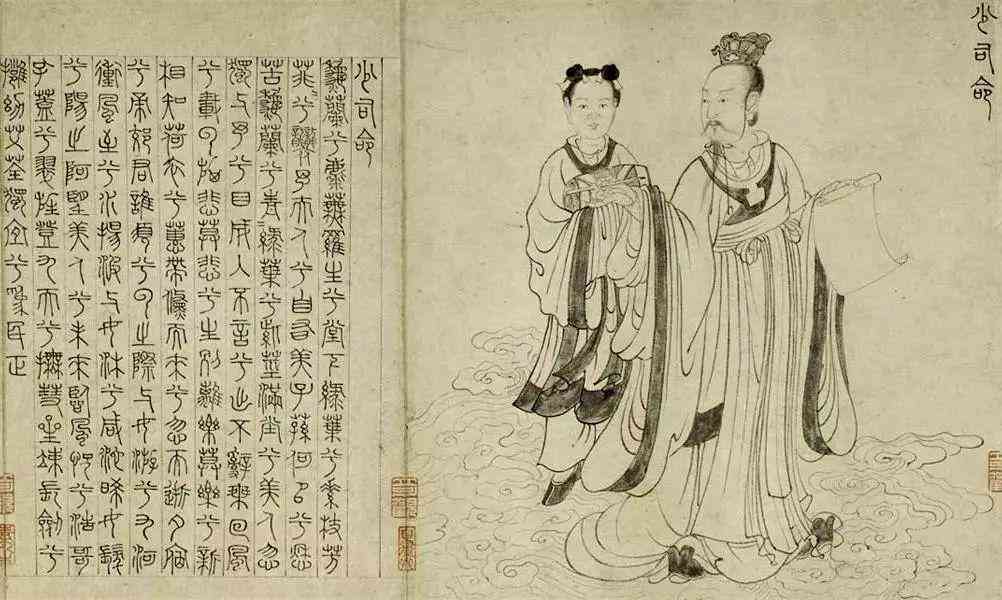 少司命
少司命
秋蘭兮麋蕪羅生兮堂下綠葉兮素枝芳
菲兮襲予夫人兮自有美子蓀何以兮愁
苦秋蘭兮青綠葉兮紫莖滿堂兮美人忽
獨与予兮目成入不言兮出不辭乘回風
兮載雲旗悲莫悲兮生別離樂莫樂兮新
相知荷衣兮蕙帶儵而來兮忽而逝夕宿
兮帝郊君誰須兮雲之際与女游兮九河
衝風至兮水揚波与女沐兮咸池晞女髮
兮陽之阿望美人兮未來臨風怳兮浩哥
孔蓋兮翠旌登九天兮撫彗星竦長劍兮
擁幼艾荃獨宜兮為民正